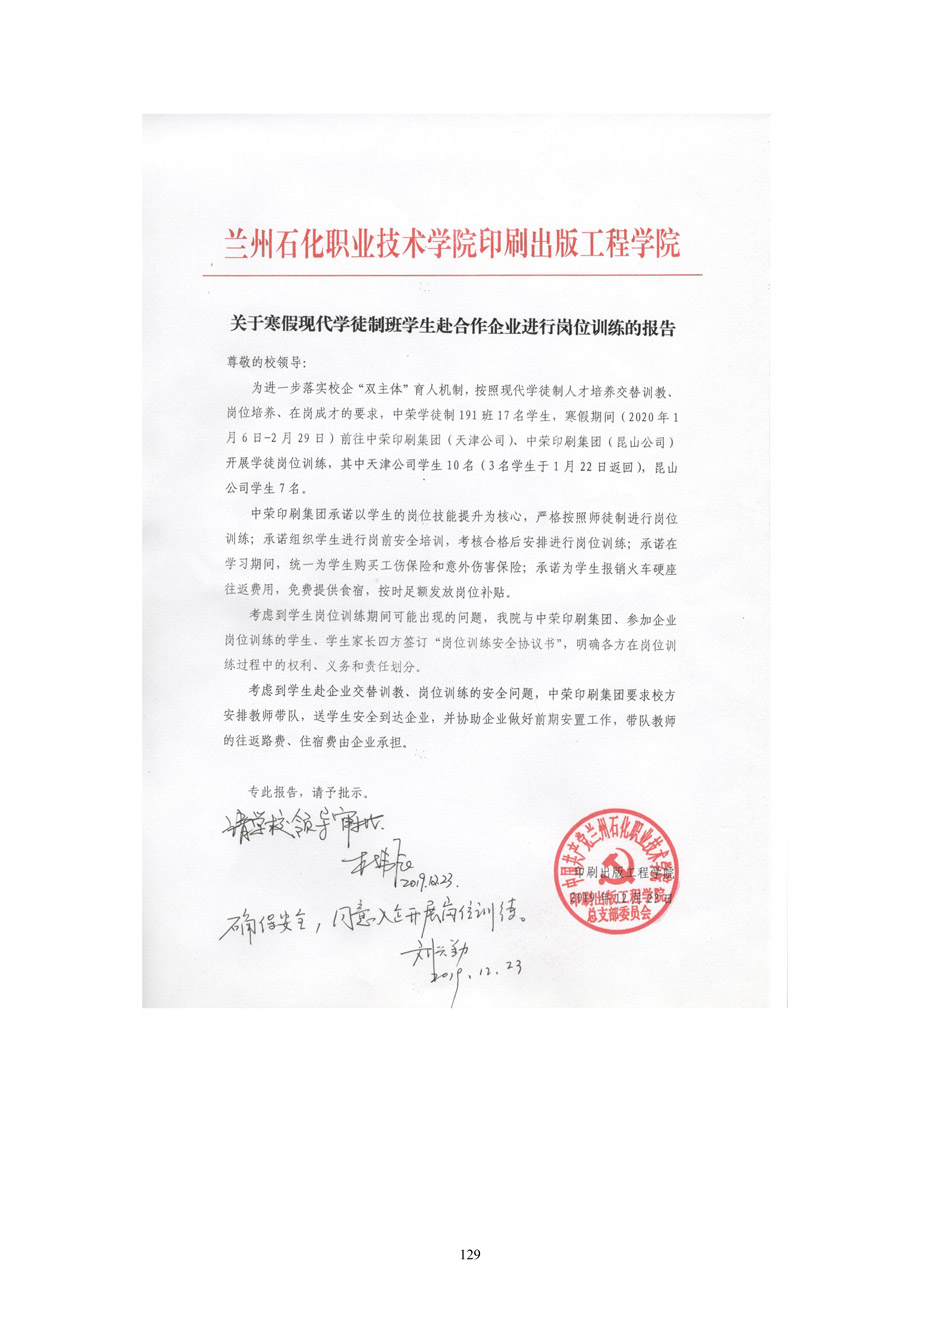 兰州石化职业技术学院印刷出版工程学院
关于寒假现代学徒制班学生赴合作企业进行岗位训练的报告
尊敬的校领导：
为进一步落实校企“双主体”育人机制，按照现代学徒制人才培养交替训教、
岗位培养、在岗成才的要求，中荣学徒制 191 班 17 名学生，寒假期间（2020 年 1
月 6 日-2 月 29 日）前往中荣印刷集团（天津公司）、中荣印刷集团（昆山公司）
开展学徒岗位训练，其中天津公司学生 10 名（3 名学生于 1 月 22 日返回），昆山
公司学生 7 名。
中荣印刷集团承诺以学生的岗位技能提升为核心，严格按照师徒制进行岗位
训练；承诺组织学生进行岗前安全培训，考核合格后安排进行岗位训练；承诺在
学习期间，统一为学生购买工伤保险和意外伤害保险；承诺为学生报销火车硬座
往返费用，免费提供食宿，按时足额发放岗位补贴。
考虑到学生岗位训练期间可能出现的问题，我院与中荣印刷集团、参加企业
岗位训练的学生、学生家长四方签订“岗位训练安全协议书”，明确各方在岗位训
练过程中的权利、义务和责任划分。
考虑到学生赴企业交替训教、岗位训练的安全问题，中荣印刷集团要求校方
安排教师带队，送学生安全到达企业，并协助企业做好前期安置工作，带队教师
的往返路费、住宿费由企业承担。
专此报告，请予批示。
请学校领导审批.
2019.12.23.
中国共产党兰州石化职业技术学院
印刷出版工程学院
总支部委员会
印刷出版工程学院
2019 年 12 月 23 日
确保安全，同意入企开展岗位训练。
刘兴勤
2019.12.23
129